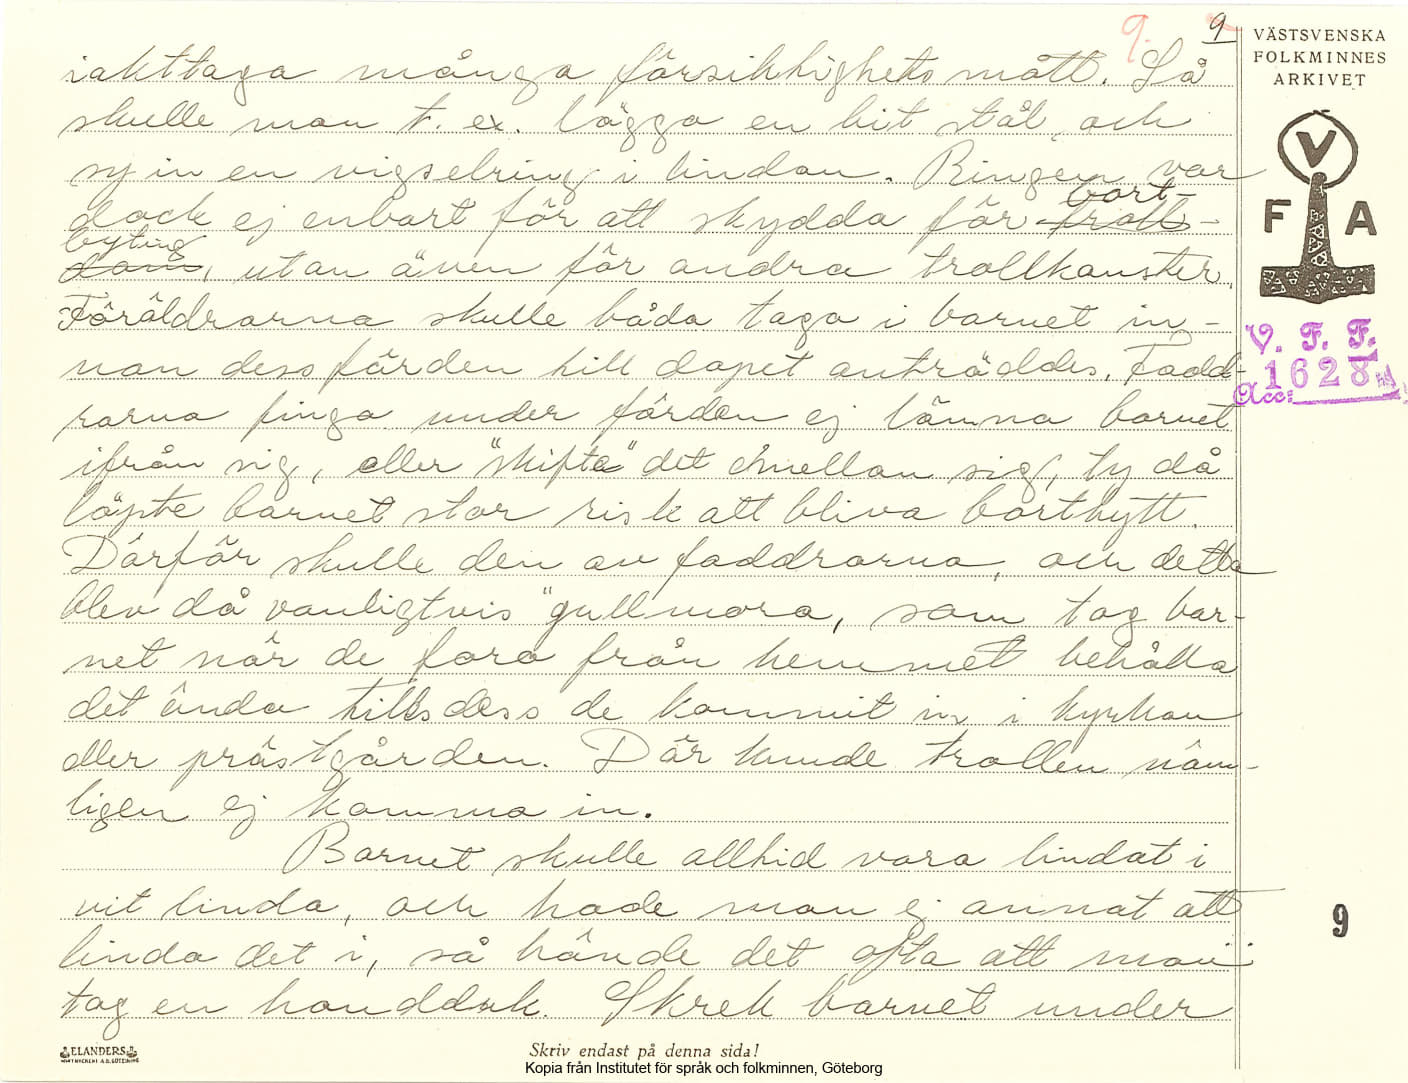 9. 9
VÄSTSVENSKA
FOLKMINNES
ARKIVET
V
F A
V. F. F.
Acc: 1628
iakttaga många försiktighets mått. Så
skulle man t. ex. lägga en bit stål och
sy in en vigselring i lindan. Ringen var
dock ej enbart för att skydda för bort-
byting, utan även för andra trollkonster.
Föräldrarna skulle båda taga i barnet in-
nan dess färden till dopet anträddes. Fadd-
rarna finga under färden ej lämna barnet
ifrån sig, eller "skifta" det emellan sig, ty då
löpte barnet stor risk att bliva bortbytt.
Därför skulle den av faddrarna, och detta
blev då vanligtvis "gullmora, som tog bar-
net när de foro från hemmet behålla
det ända tills dess de kommit in i kyrkan
eller prästgården. Där kunde trollen näm-
ligen ej komma in.
Barnet skulle alltid vara lindat i
vit linda, och hade man ej annat att
linda det i, så hände det ofta att man
tog en handduk. Skrek barnet under
9
ELANDERS
Skriv endast på denna sida!
Kopia från Institutet för språk och folkminnen, Göteborg